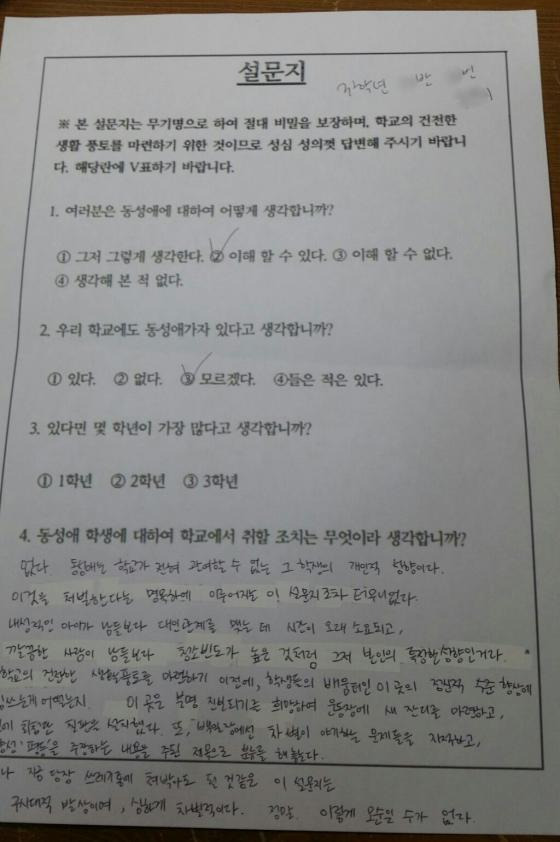 설문지
학년 반 번
※ 본 설문지는 무기명으로 하여 절대 비밀을 보장하며, 학교의 건전한
생활 풍토를 마련하기 위한 것이므로 성심 성의껏 답변해 주시기 바랍니
다. 해당란에 V표하기 바랍니다.
1. 여러분은 동성애에 대하여 어떻게 생각합니까?
① 그저 그렇게 생각한다. ② 이해 할 수 있다. ③ 이해 할 수 없다.
④ 생각해 본 적 없다.
2. 우리 학교에도 동성애가자 있다고 생각합니까?
① 있다. ② 없다. ③ 모르겠다. ④들은 적은 있다.
3. 있다면 몇 학년이 가장 많다고 생각합니까?
① 1학년 ② 2학년 ③ 3학년
4. 동성애 학생에 대하여 학교에서 취할 조치는 무엇이라 생각합니까?
없다. 동성애는 학교가 전혀 관여할 수 없는 그 학생의 개인적 성향이다.
이것을 처벌한다는 명목하에 이루어지는 이 설문지조차 터무니없다.
내성적인 아이가 남들보다 대인관계를 맺는 데 시간이 오래 소요되고,
깔끔한 사람이 남들보다 빈도가 높은 것처럼 그저 본인의 특정한 성향인거라.
학교의 건전한 생활풍토를 마련하기 이전에, 학생들의 배움터인 이 곳의 정신적 수준 향상에
힘쓰는게 어떻는지. 이 곳은 분명 진보되기를 희망하여 운동장에 새 잔디를 마련하고,
설치했다. 또, 백일장에선 차별이 야기하는 문제들을 지적하고,
평등을 주장하는 내용을 주된 제목으로 분류를 해놓다.
지금 당장 쓰레기통에 쳐박아도 될 것같은 이 설문지는
구시대적 발상이며, 심하게 차별적이다. 정말. 이렇게 모순일 수가 없다.